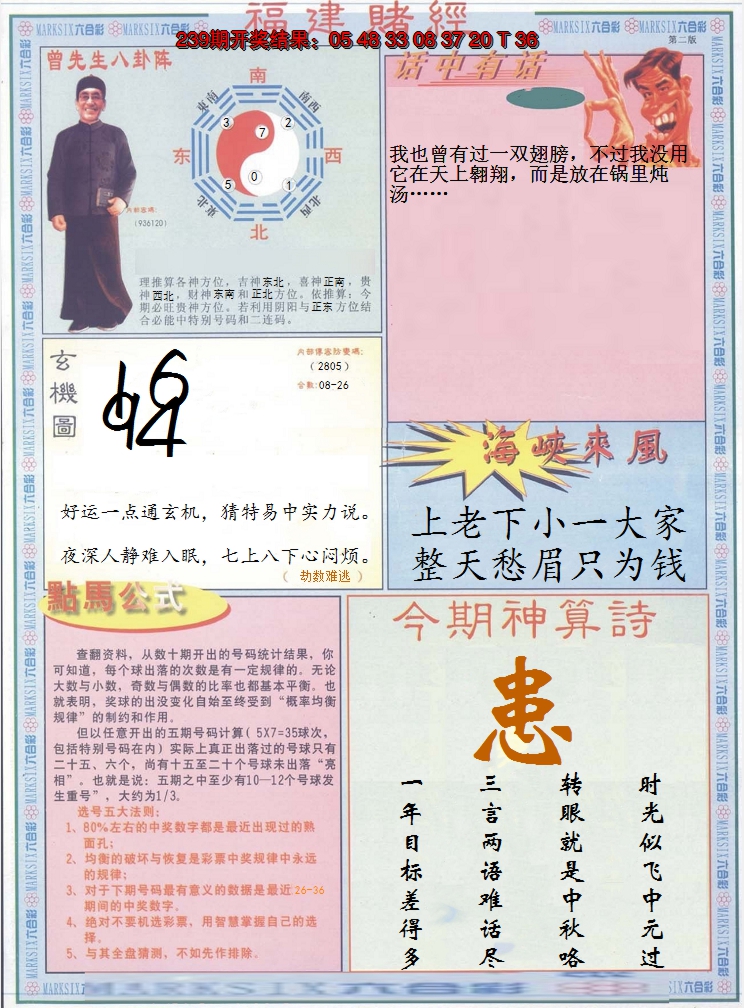 福建賭經
239期开奖结果：05 48 33 08 37 20 T 36
MARKSIX六合彩
第二版
曾先生八卦阵
南
東南
南西
3
7
2
东
西
5
0
1
東北
北西
北
内部密碼：
（936120）
理推算各神方位，吉神东北，喜神正南，贵
神西北，财神东南和正北方位。依推算：今
期必旺贵神方位。若利用阴阳与正东方位结
合必能中特别号码和二连码。
话中有话
我也曾有过一双翅膀，不过我没用
它在天上翱翔，而是放在锅里炖
汤……
玄機圖
（2805）
合数：08-26
好运一点通玄机，猜特易中实力说。
夜深人静难入眠，七上八下心闷烦。
（ 劫数难逃 ）
海峽來風
上老下小一大家
整天愁眉只为钱
點馬公式
查翻资料，从数十期开出的号码统计结果，你
可知道，每个球出落的次数是有一定规律的。无论
大数与小数，奇数与偶数的比率也都基本平衡。也
就表明，奖球的出没变化自始至终受到“概率均衡
规律”的制约和作用。
但以任意开出的五期号码计算（5X7=35球次，
包括特别号码在内）实际上真正出落过的号球只有
二十五、六个，尚有十五至二十个号球未出落“亮
相”。也就是说：五期之中至少有10—12个号球发
生重号”，大约为1/3。
选号五大法则：
1、80%左右的中奖数字都是最近出现过的熟
面孔；
2、均衡的破坏与恢复是彩票中奖规律中永远
的规律；
3、对于下期号码最有意义的数据是最近26-36
期间的中奖数字。
4、绝对不要机选彩票，用智慧掌握自己的选
择。
5、与其全盘猜测，不如先作排除。
今期神算詩
患
时光似飞中元过
转眼就是中秋咯
三言两语难话尽
一年目标差得多